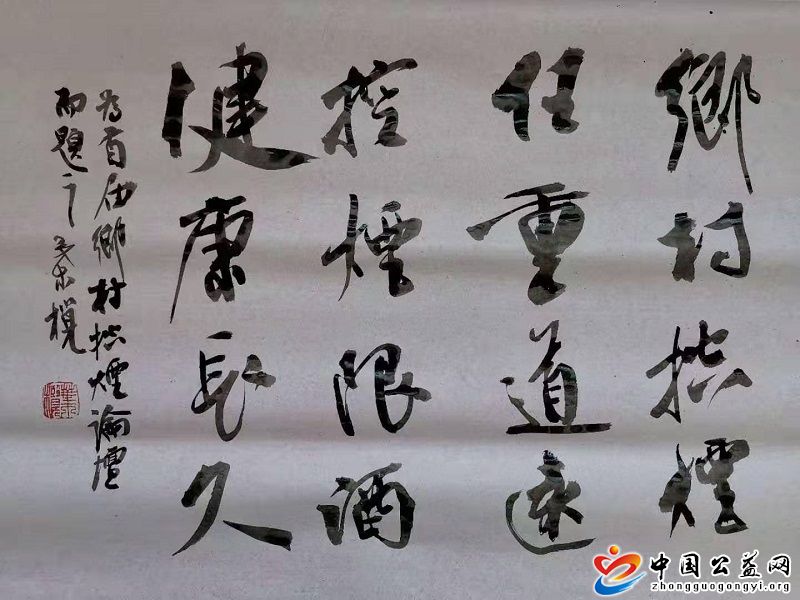 鄉村控煙
任重道遠
控煙限酒
健康長久
為首届鄉村控煙論壇
而題之
中国公益网
zhongguogongyi.org